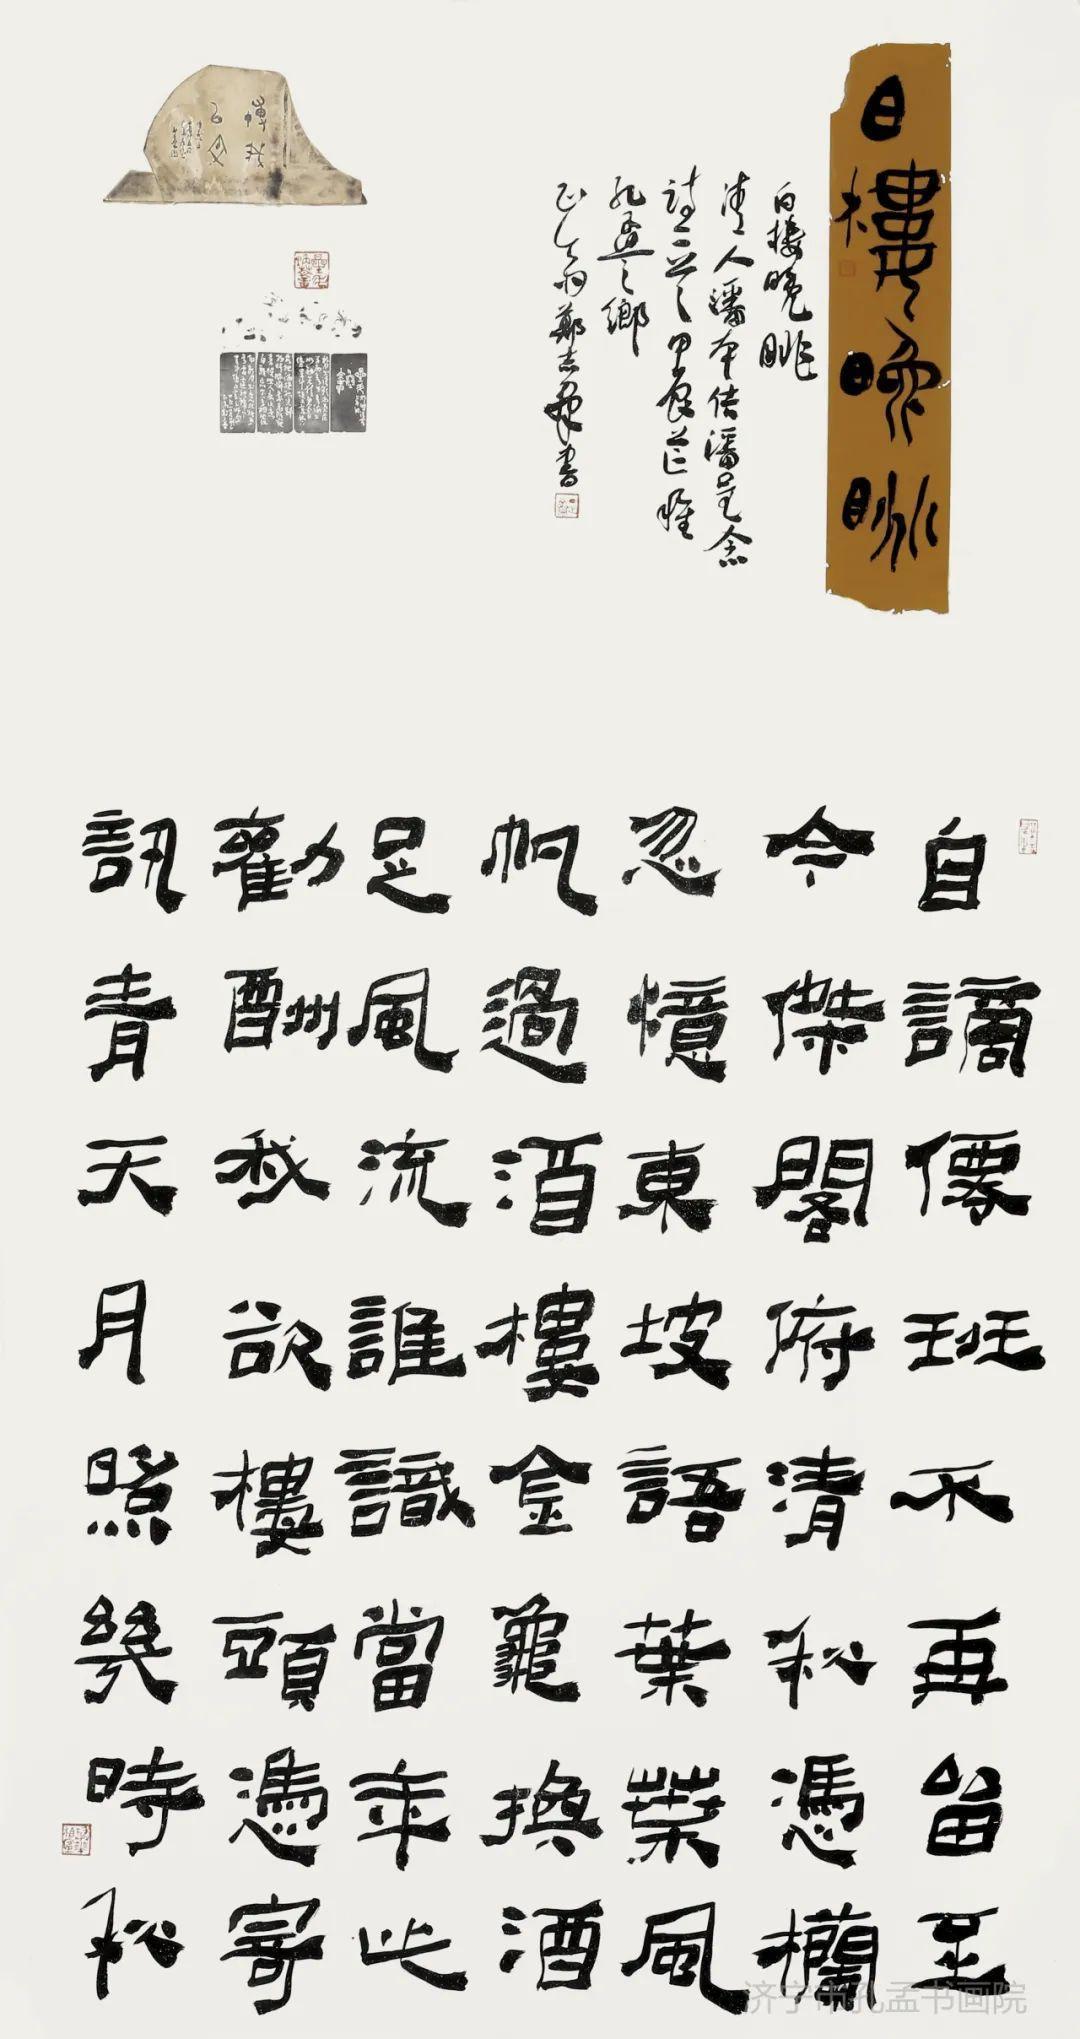 白樓晚眺
白樓晚眺
清人潘本佶潘呈念
詩二首甲辰芒種
孔孟之鄉
鄭志書
自謫僊班不再留至
今傑閣俯清秋憑欄
忽憶東坡語葉葉風
帆過酒樓金龜換酒
足風流誰識當年此
勸酬我欲樓頭憑寄
訊青天月照幾時秋
济宁市孔孟书画院